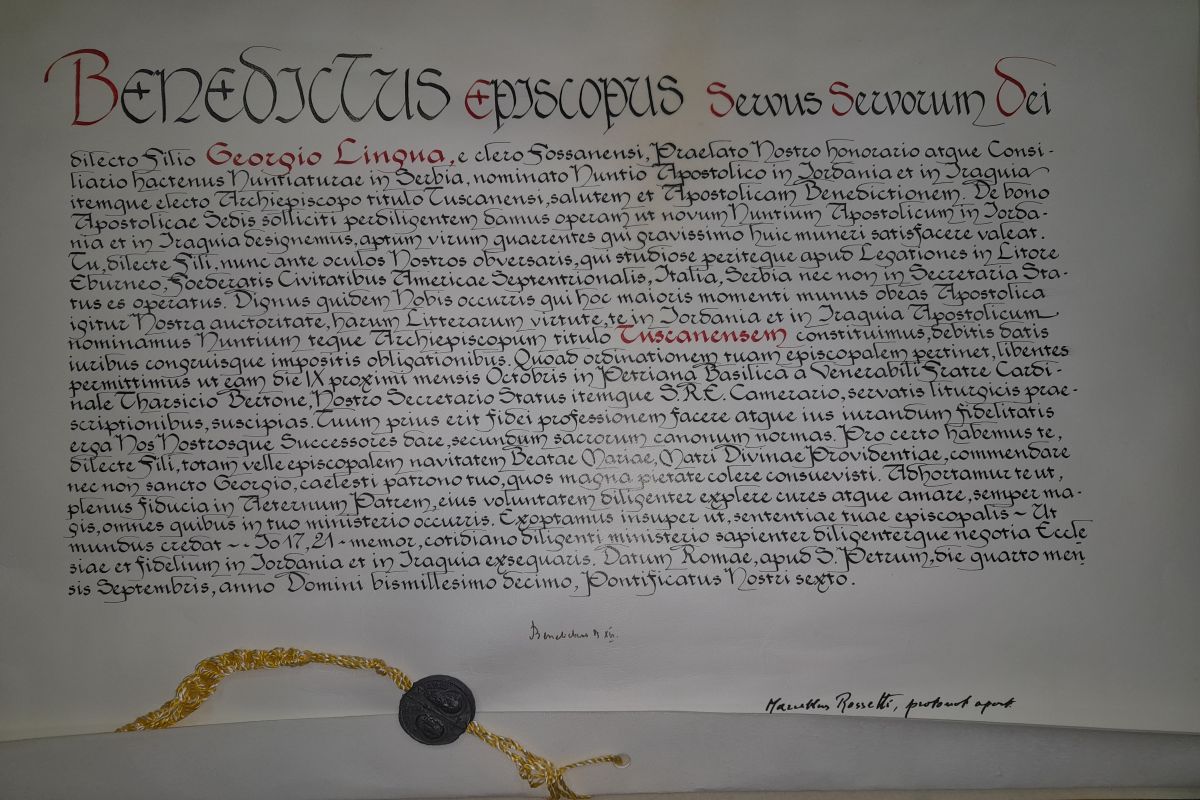 BENEDICTUS EPISCOPUS Servus Servorum Dei
dilecto Filio Georgio Lingua, e clero Fossanensi, Praelato Nostro honorario atque Consi-
liario hactenus Nuntiaturae in Serbia, nominato Nuntio Apostolico in Iordania et in Iraquia
itemque electo Archiepiscopo titulo Tuscanensi, salutem et Apostolicam Benedictionem. De bono
Apostolicae Sedis solliciti perdiligentem damus operam ut novum Nuntium Apostolicum in Iorda-
nia et in Iraquia designemus, aptum virum quaerentes qui gravissimo huic muneri satisfacere valeat.
Tu, dilecte Fili, nunc ante oculos Nostros obversaris, qui studiose periteque apud Legationes in Litore
Eburneo, Foederatis Civitatibus Americae Septentrionalis, Italia, Serbia nec non in Secretaria Sta-
tus es operatus. Dignus quidem Nobis occurris qui hoc maioris momenti munus obeas Apostolica
igitur Nostra auctoritate, harum Litterarum virtute, te in Iordania et in Iraquia Apostolicum
nominamus Nuntium teque Archiepiscopum titulo Tuscanensem constituimus, debitis datis
iuribus congruisque impositis obligationibus. Quoad ordinationem tuam episcopalem pertinet, libentes
permittimus ut eam die IX proximi mensis Octobris in Petriana Basilica a Venerabili Fratre Cardi-
nale Tharsicio Bertone, Nostro Secretario Status itemque S.R.E. Camerario, servatis liturgicis prae-
scriptionibus, suscipias. Tuum prius erit fidei professionem facere atque ius iurandum fidelitatis
erga Nos Nostrosque Successores dare, secundum sacrorum canonum normas. Pro certo habemus te,
dilecte Fili, totam velle episcopalem navitatem Beatae Mariae, Matri Divinae Providentiae, commendare
nec non sancto Georgio, caelesti patrono tuo, quos magna pietate colere consuevisti. Adhortamur te ut,
plenus fiducia in Aeternum Patrem, eius voluntatem diligenter explere cures atque amare, semper ma-
gis, omnes quibus in tuo ministerio occurris. Exoptamus insuper ut, sententiae tuae episcopalis - Ut
mundus credat - - Io 17, 21 - memor, cotidiano diligenti ministerio sapienter diligenterque negotia Eccle
siae et fidelium in Iordania et in Iraquia exsequaris. Datum Romae, apud S. Petrum, die quarto men
sis Septembris, anno Domini bismillesimo decimo, Pontificatus Nostri sexto.
Benedictus PP XVI.
Marcellus Rossetti, protonot. apost.